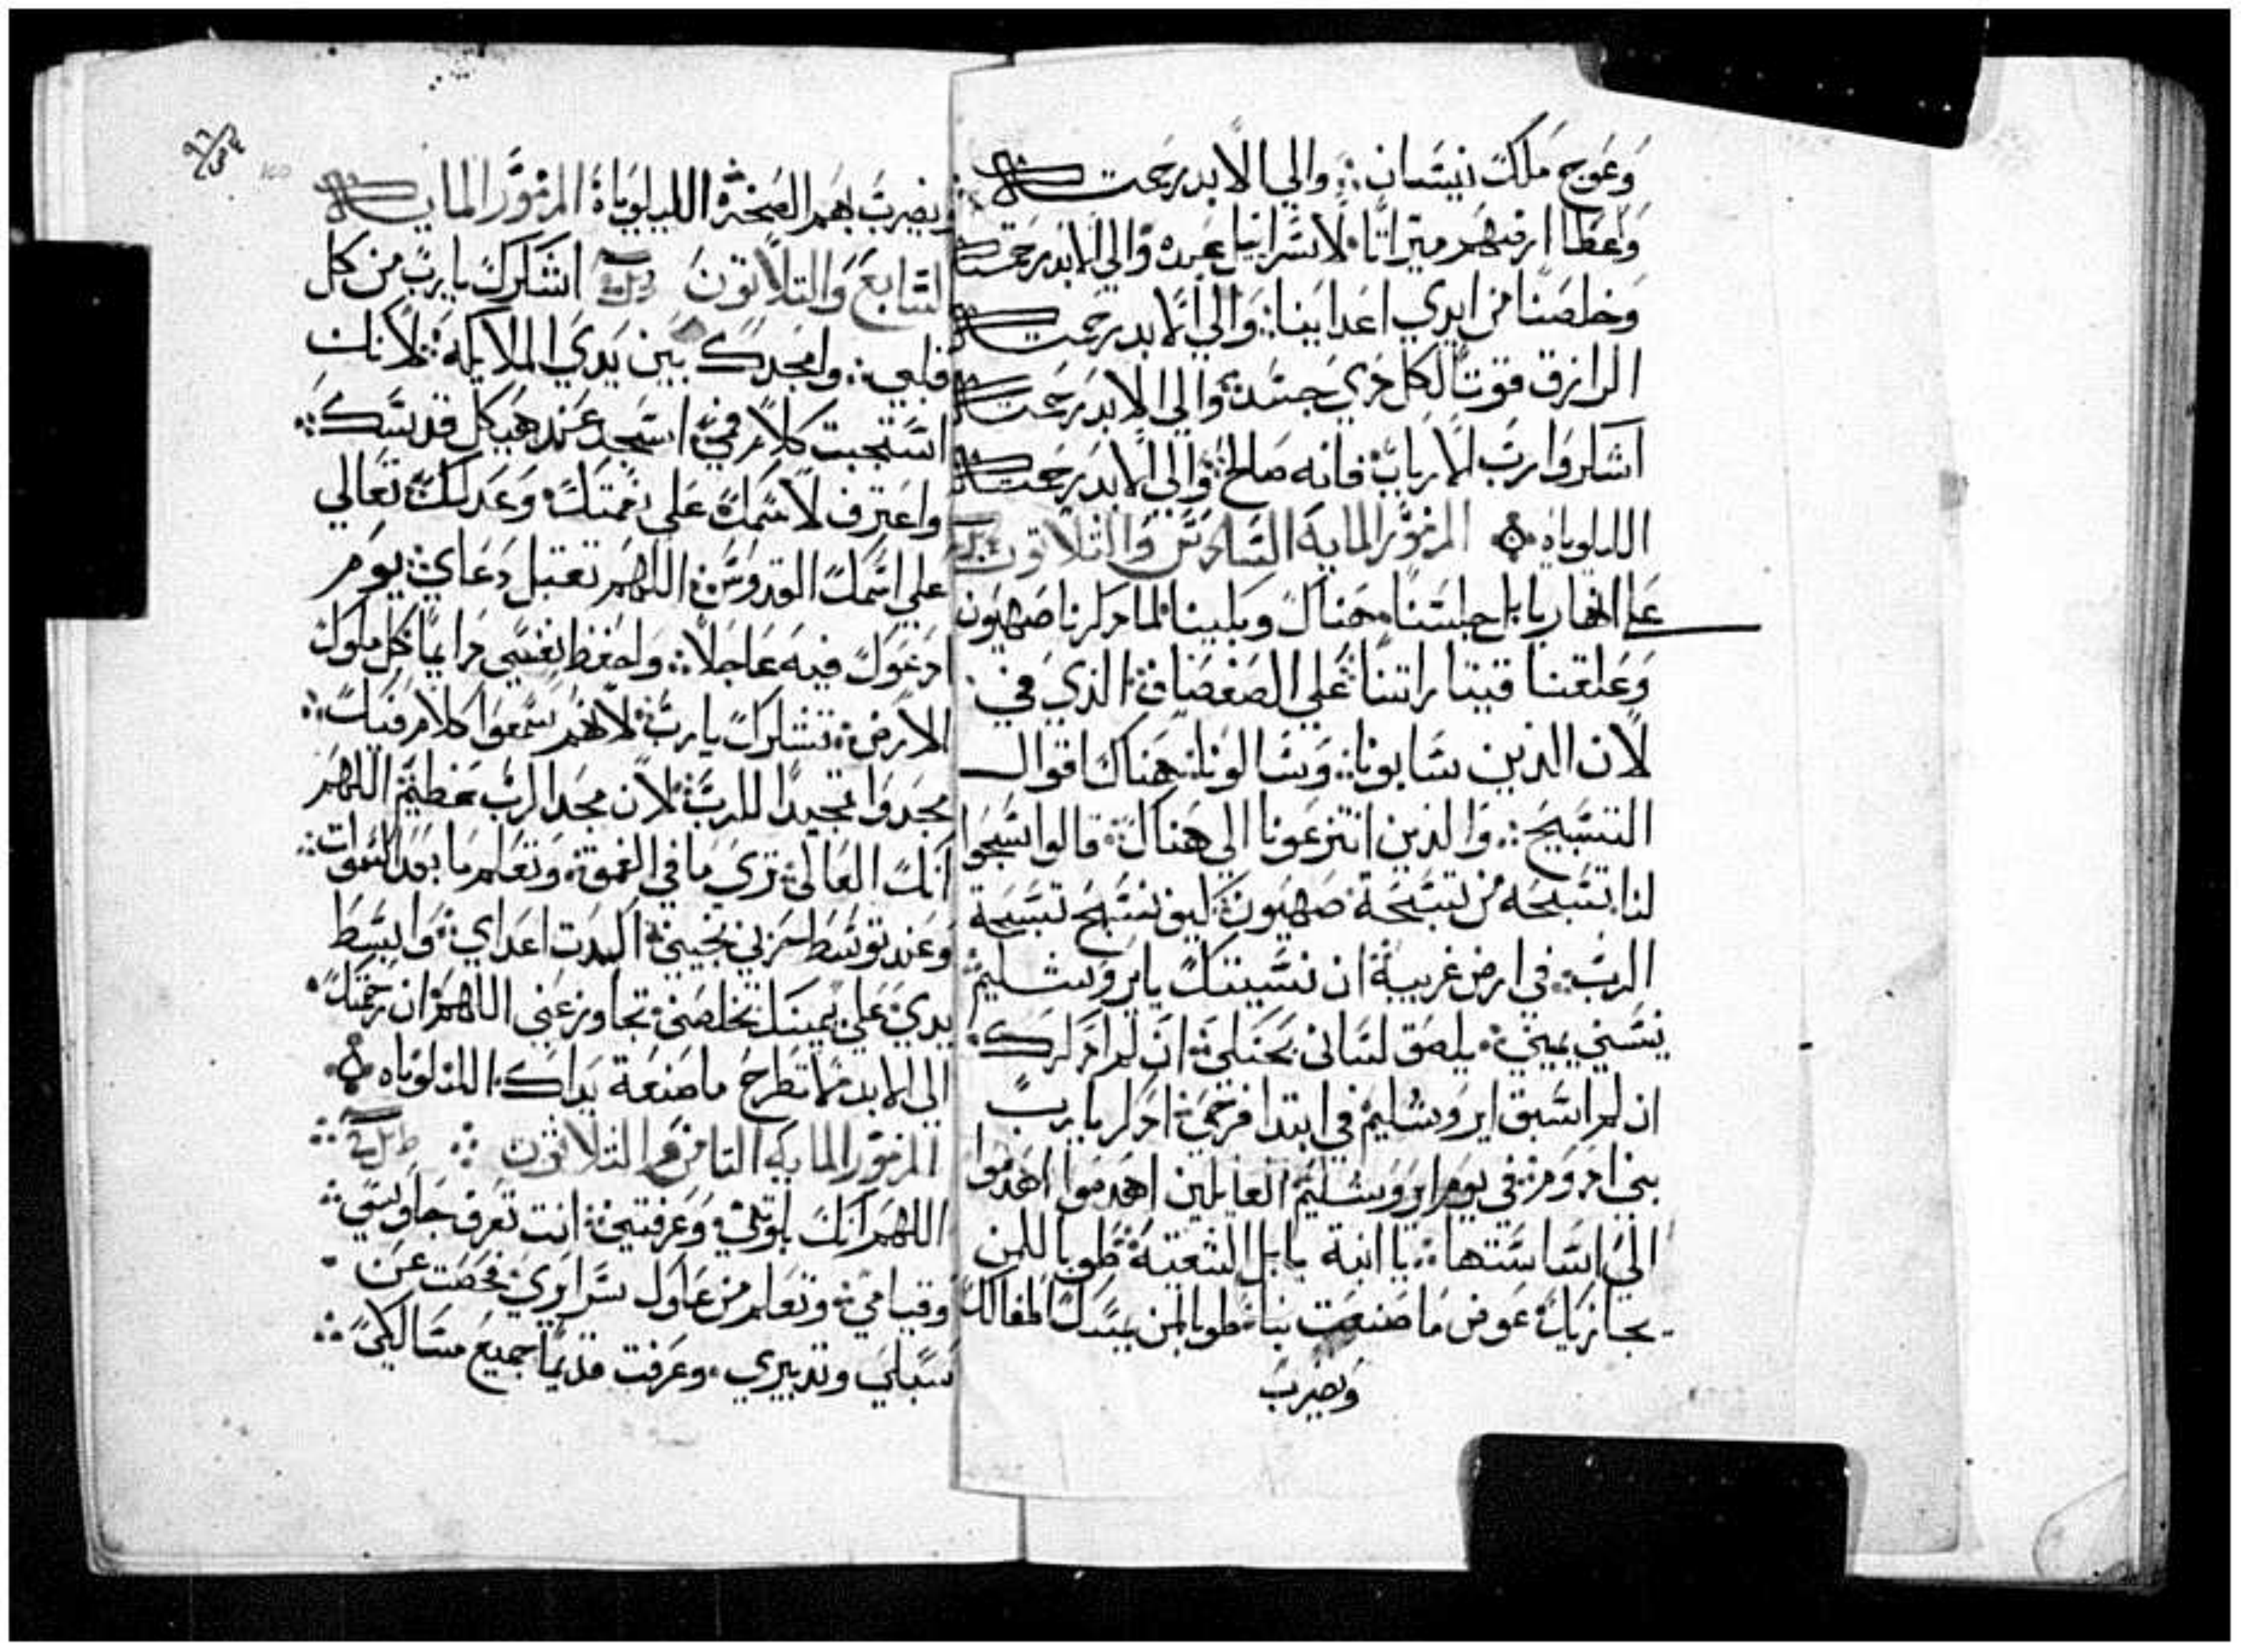 وَعَوج مَلكَ نيسَان ⁘ والي الابد رحمتـــه
وَاعَطا ارضهم ميراتًا ⁘ لاسَرائيل عَبده والي الابد رحمته
وَخلصَنا من ايدي اعَداينا ⁘ وَالي الابد رحمته
الرازق قوتًا لكل ذي جسَد ⁘ والي الابد رحمته
اشكروا ربَ الارباب فانه صَالح ⁘ والي الابد رحمته
الليلوياه ⁘ المزمور المايه السَادسَ وَالتلاتون
عَلي انهار بابل جلسَنا هَناك وبكينا لما ذكرنا صَهيون
وَعَلقنا قيتاراتنا عَلي الصَفصَاف ⁘ الذي في
لان الذين سَابونا ⁘ وَسَالونا هَناك اقوال
التسَبيح ⁘ وَالذين انتزعَونا الي هَناك ⁘ قالوا سَبحوا
لنا تسَبحَه من تسَبحَة صَهيون ⁘ كيف نسَبح تسَبحة
الربَ ⁘ في ارض غريبة ان نسَيتك يايروشليم
تنسَني يميني ⁘ يلصَق لسَاني بحَنكي ⁘ ان لم اذكرك
ان لم اسَبق ايروشليم في ابتدا فرحَي ⁘ اذكر يا ربَ
بني ادوم ⁘ في يوم ايروشليم القايلين اهَدموا اهَدموا
الي اسَاسَتها ⁘ يا ابنة بابل الشقية طوبا للمن
يجازيك عَوض ما صَنعَت بنا ⁘ طوبا لمن يمسَك اطفالك
وَيضربَ
ويضربَ بهم الصَخرة الليلوياة المزمور المايه
السَابع وَالتلاتون اشكرك ياربَ من كل
قلبي ⁘ وامجدك بين يدي الملايكه ⁘ لانك
استجبت كلام في ⁘ اسَجد عَند هَيكل قدسَك ⁘
واعَترف لاسَمك عَلي نعمتك وَعَدلك تعَالي
عَلي اسَمك القدوس ⁘ اللهم تقبل دعَاي ⁘ يوم
ادعَوك فيه عَاجلًا ⁘ واحفظ نفسي دايمًا كل ملوك
الارض ⁘ تشكرك ياربَ لانهم سَمعَوا كلام فيك ⁘
مجدوا تمجيدًا للربَ لان مجد الربَ عَظيم اللهم
انك العَالي ⁘ تري ما في العمق ⁘ وتعَلم ما بعد السموات
وَعَند توسَط حَزني نجيني ⁘ اكبدت اعَداي ⁘ وَابسَط
يدي عَلي يمينك تخلصني تجاوز عَني اللهم ان رحمتك
الي الابد ⁘ لا تطرح ما صَنعَة يداك الليلوياه ⁘
المزمور المايه التامن والتلاتون ⁘
اللهم انك بلوتني وَعَرفتني ⁘ انت تعَرف جَلوسَي ⁘
وقيامي ⁘ وتعَلم من عَاول سَرايري فحَصت عَن
سَبلي وتدبيري ⁘ وعَرفت قديمًا جميع مسَالكي ⁘